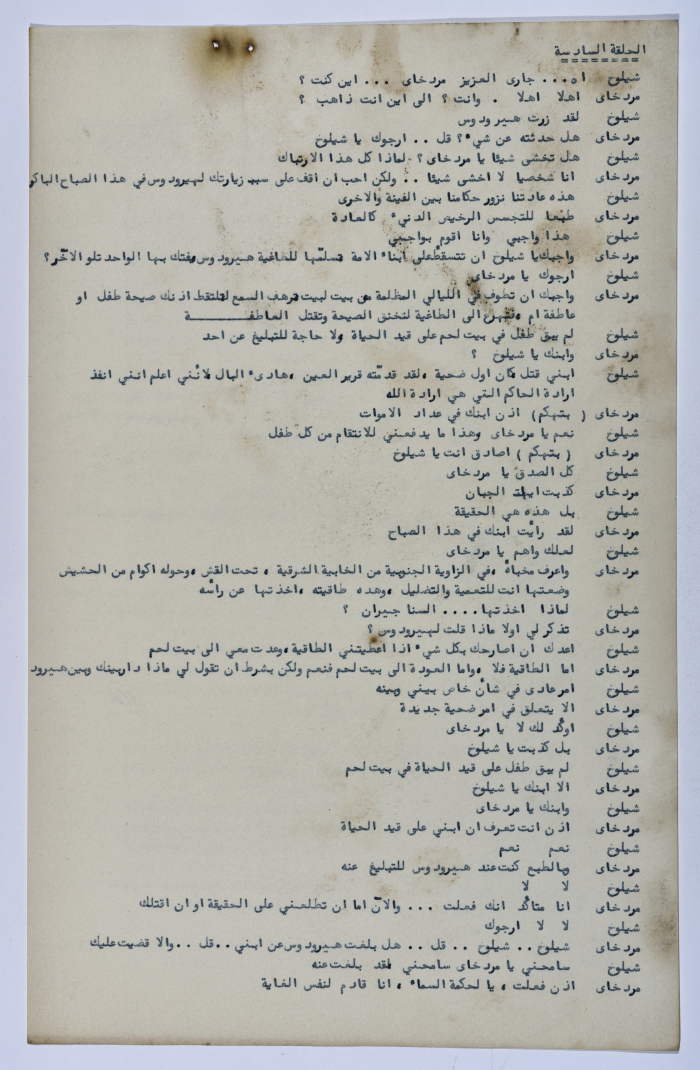 الحلقة السادسة
شيلوخ اه... جارى العزيز مردخاى ... اين كنت ؟
مردخاى اهلا اهلا . وانت؟ الى اين انت ذاهب ؟
شيلوخ لقد زرت هيرودوس
مردخاى هل حدثته عن شيء؟ قل .. ارجوك يا شيلوخ
شيلوخ هل تخشى شيئا يا مردخاى؟ لماذا كل هذا الارتباك
مردخاى انا شخصيا لا اخشى شيئا .. ولكن احب ان اقف على سبب زيارتك لهيرودوس في هذا الصباح الباكر
شيلوخ هذه عادتنا نزور حكامنا بين الفينة والاخرى
مردخاى طبعا للتجسس الرخيص الدنيء كالعادة
شيلوخ هذا واجبي وانا اقوم بواجبي
مردخاى واجبك يا شيلوخ ان تتسقط على ابناء الامة تسلمّها للطاغية هيرودوس يفتك بها الواحد تلو الآخر؟
شيلوخ ارجوك يا مردخاى
مردخاى واجبك ان تطوف في الليالي المظلمة من بيت لبيت ترهف السمع لتلتقط اذنك صيحة طفل او
عاطفة ام الى الطاغية لتخنق الصيحة وتقتل العاطفـــــــــة
شيلوخ لم يبق طفل في بيت لحم على قيد الحياة ولا حاجة للتبليغ عن احد
مردخاى وابنك يا شيلوخ ؟
شيلوخ ابني قتل كان اول ضحية ،لقد قدمّته قرير العين ،هادىء البال لانُني اعلم انني انفذ
ارادة الحاكم التي هي ارادة الله
مردخاى ( بتهكم) اذن ابنك في عداد الاموات
شيلوخ نعم يا مردخاى وهذا ما يدفعني للانتقام من كل طفل
مردخاى ( بتهكم ) اصادق انت يا شيلوخ
شيلوخ كل الصدق يا مردخاى
مردخاى كذبت ايها الجبان
شيلوخ بل هذه هي الحقيقة
مردخاى لقد رايُت ابنك في هذا الصباح
شيلوخ لعلك واهم يا مردخاى
مردخاى واعرف مخباهُ ،في الزاوية الجنوبية من الخابية الشرقية ، تحت القش ،وحوله اكوام من الحشيش
وضعتها انت للتعمية والتضليل ،وهذه طاقيته ،اخذتها عن راسُه
شيلوخ لماذا اخذتها.... السنا جيران ؟
مردخاى تذكر لي اولا ماذا قلت لهيرودوس؟
شيلوخ اعدك ان اصارحك بكل شيء اذا اعطيتني الطاقية ،وعدت معي الى بيت لحم
مردخاى اما الطاقية فلا ،واما العودة الى بيت لحم فنعم ولكن بشرط ان تقول لي ماذا دار بينك وبين هيرود
شيلوخ امر عادى في شانُ خاص بيني وبينه
مردخاى الا يتعلق في امر ضحية جديدة
شيلوخ اوكُد لك لا يا مردخاى
مردخاى بل كذبت يا شيلوخ
شيلوخ لم يبق طفل على قيد الحياة في بيت لحم
مردخاى الا ابنك يا شيلوخ
شيلوخ وابنك يا مردخاى
مردخاى اذن انت تعرف ان ابني على قيد الحياة
شيلوخ نعم نعم
مردخاى وبالطبع كنت عند هيرودوس للتبليغ عنه
شيلوخ لا لا
مردخاى انا متاكُد انك فعلت ... والآن اما ان تطلعني على الحقيقة او ان اقتلك
شيلوخ لا لا ارجوك
مردخاى شيلوخ.. شيلوخ .. قل .. هل بلغت هيرودوس عن ابني ..قل ..والا قضيت عليك
شيلوخ سامحني يا مردخاى سامحني لقد بلغت عنه
مردخاى اذن فعلت ، يا لحكمة السماء ، انا قادم لنفس الغاية